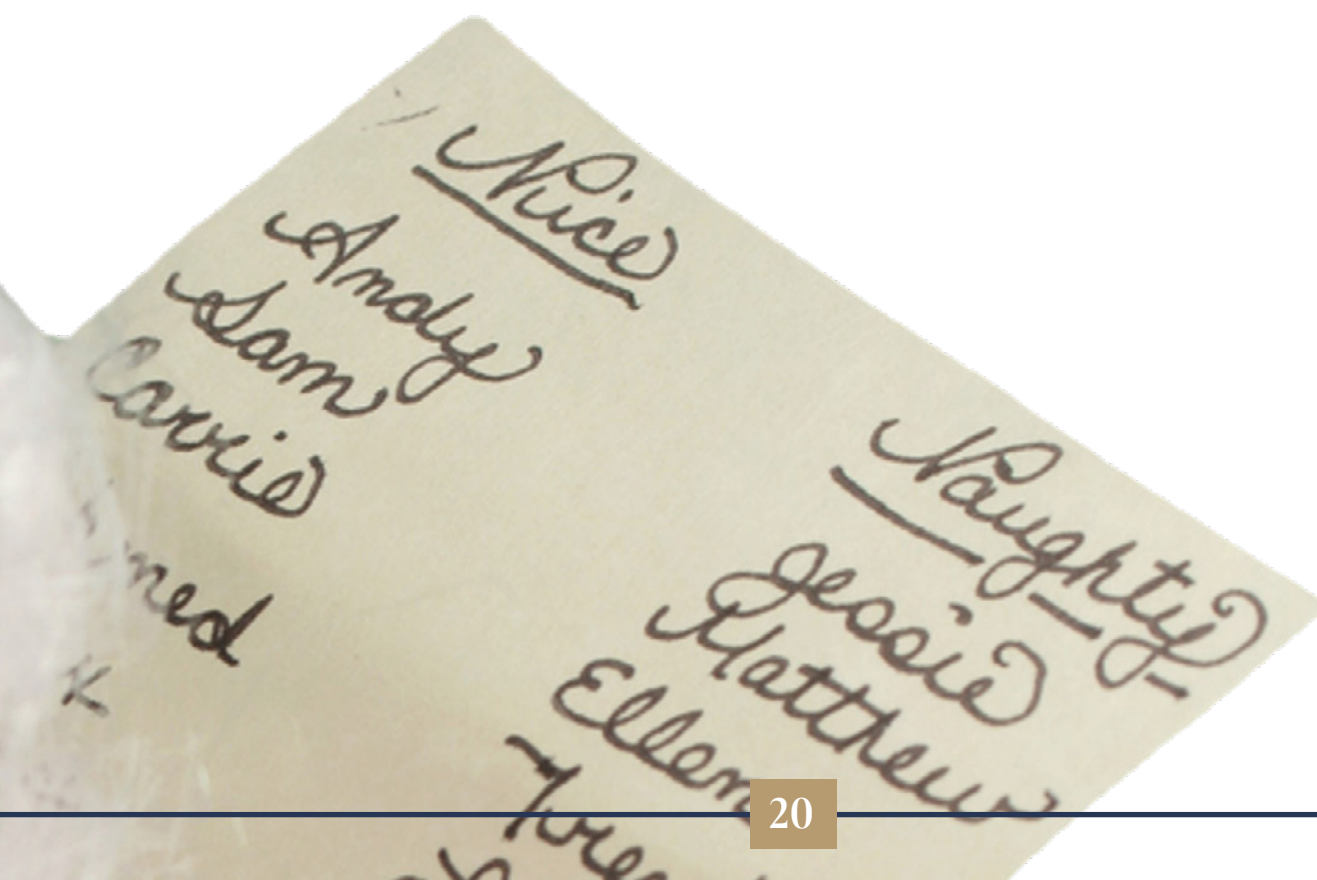 Nice
Andy
Sam
Carrie
Naughty
Jessie
Matthew
Ellen
20